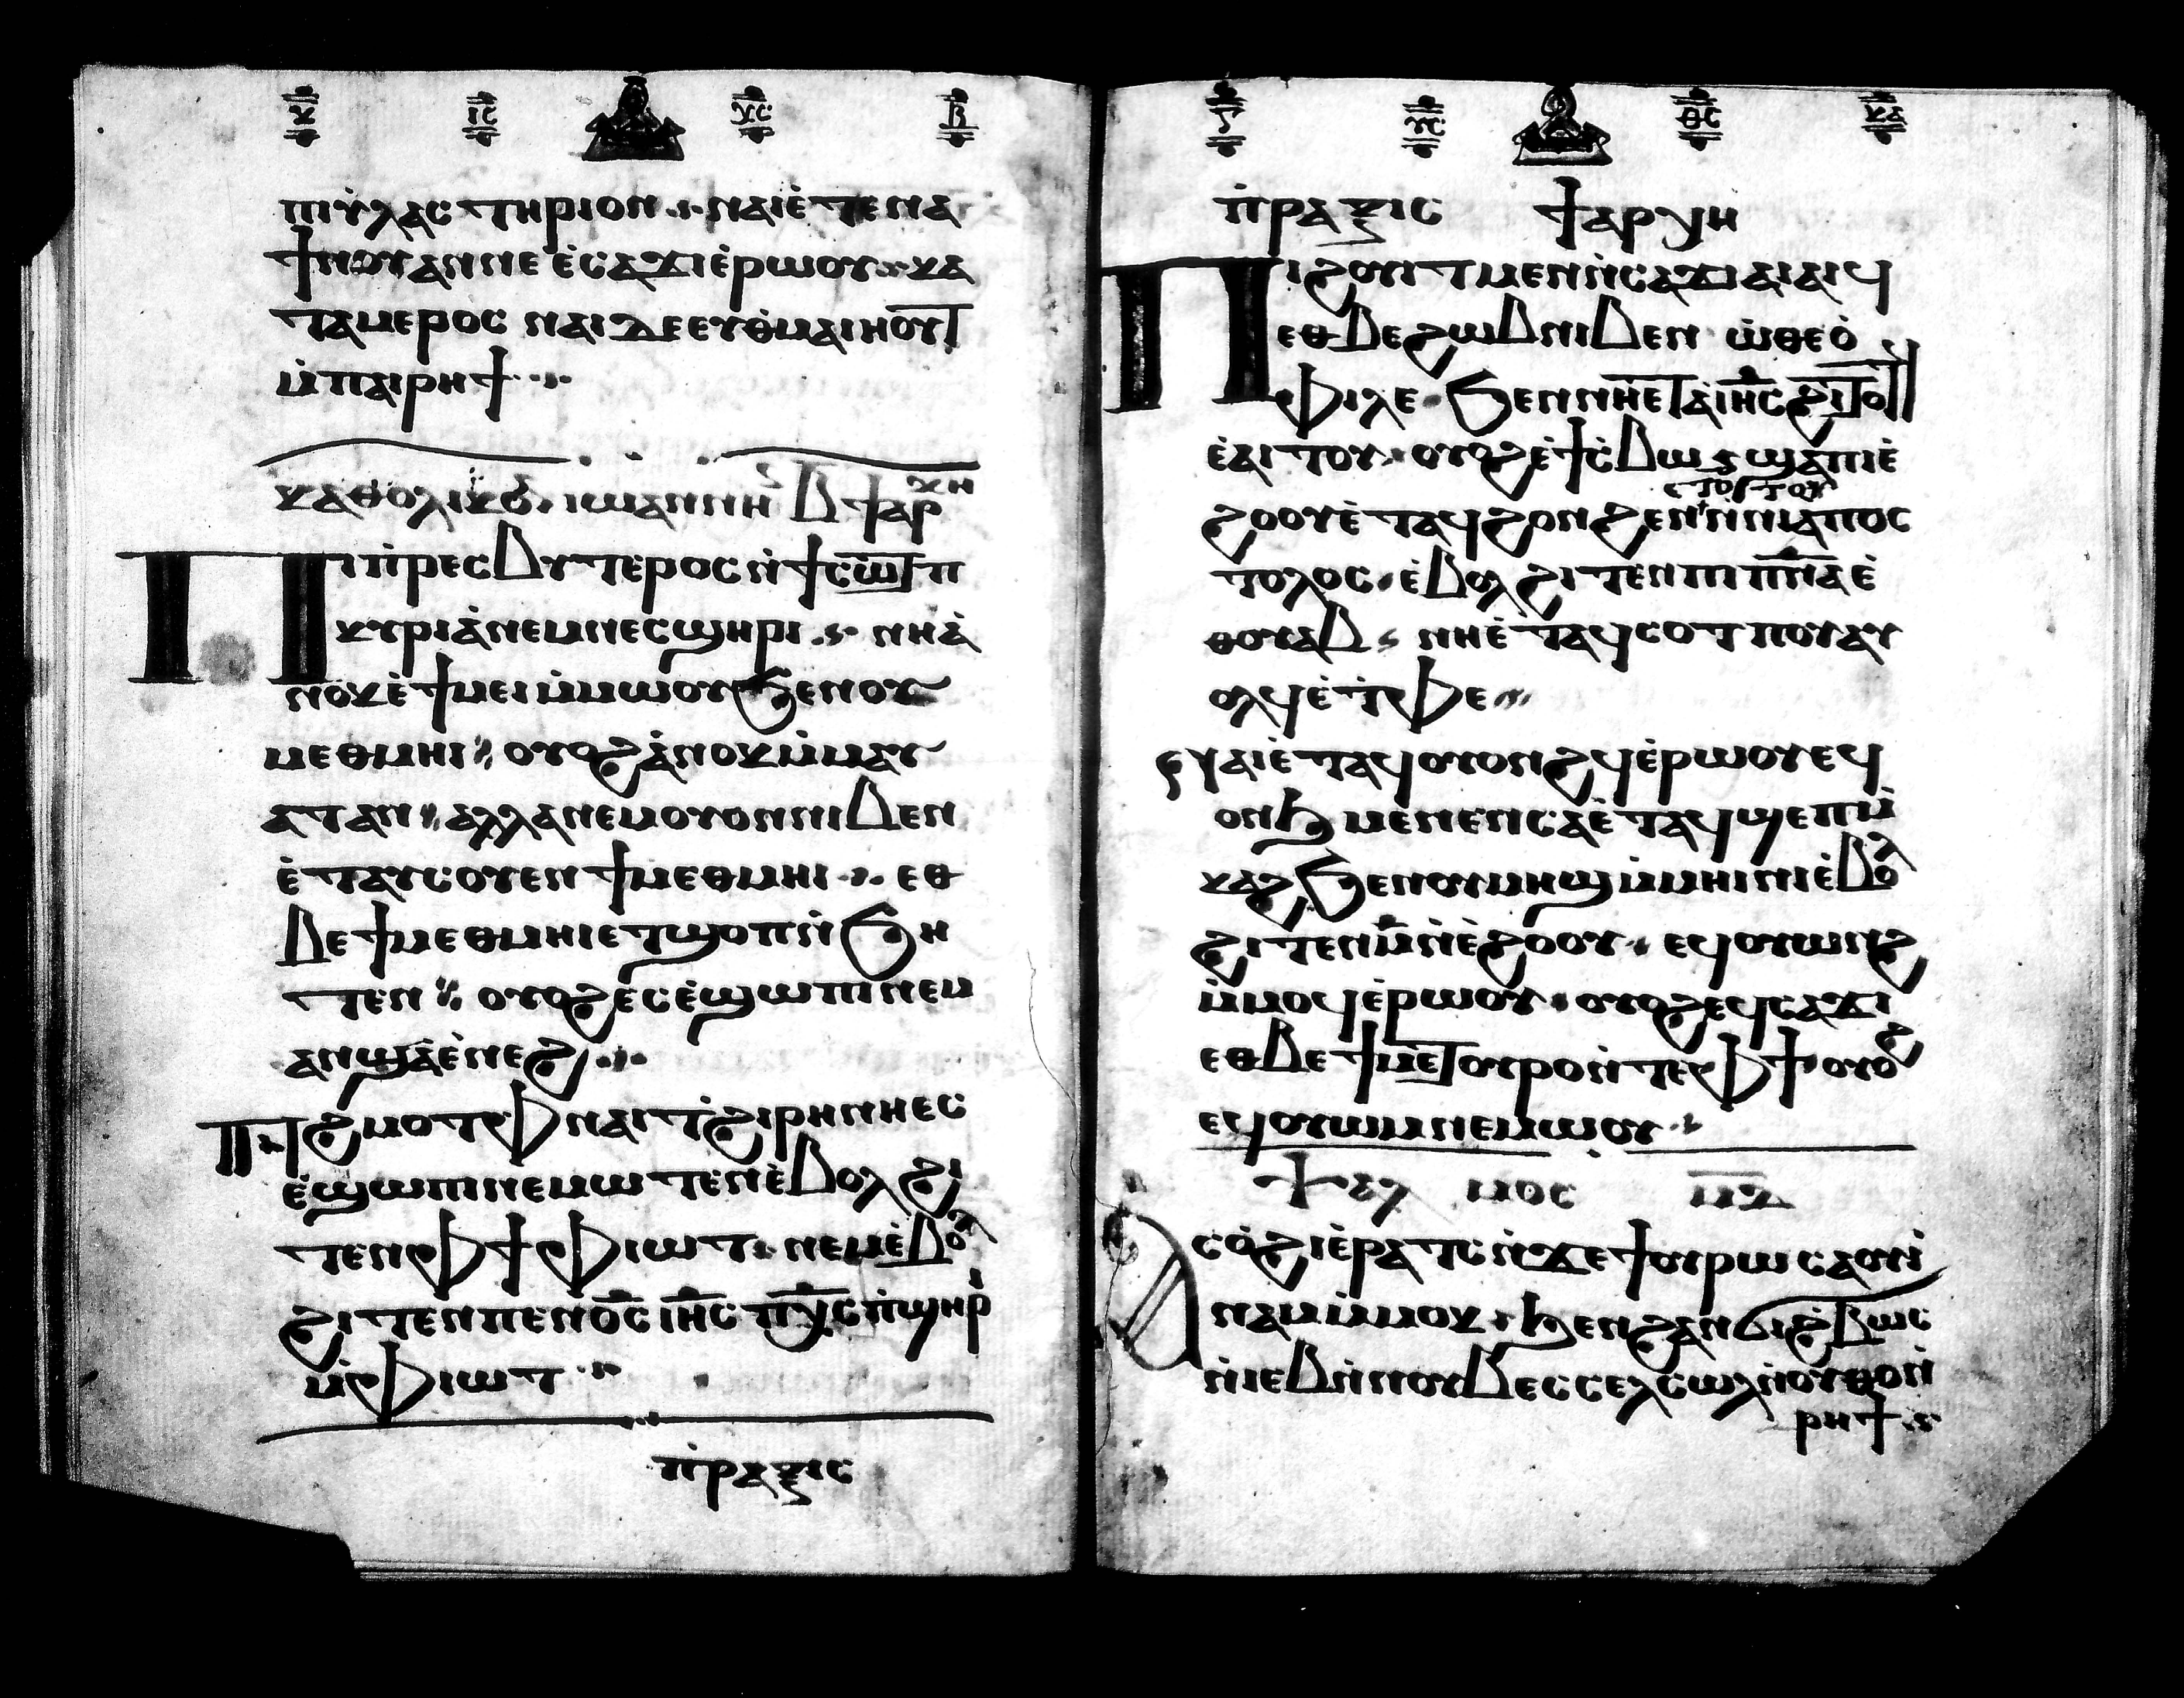 ⲕ ⲓⲥ ⲭⲥ ⲃ
ⲡⲓⲩⲗⲁⲥⲧⲏⲣⲓⲟⲛ ⲛⲁⲓⲉ̀ⲧⲉⲛⲁ
ϯⲛⲟⲩⲁⲛⲛⲉ ⲉ̀ⲥⲁϫⲓⲉ̀ⲣⲱⲟⲩ ⲕⲁ
ⲧⲁⲙⲉⲣⲟⲥ ⲛⲁⲓ ⲇⲉ ⲉⲩⲑ̀ⲙⲁⲓⲏⲟⲩⲧ
ⲙ̀ⲡⲁⲓⲣⲏϯ
ⲕⲁⲑⲟⲗⲓⲕⲟⲛ ⲓⲱⲁⲛⲛⲏⲥ ⲃ ϯⲁⲣⲭⲏ
Ⲡⲓⲡ̀ⲣⲉⲥⲃⲩⲧⲉⲣⲟⲥ ⲛ̀ϯⲥⲱⲧⲡ
ⲕⲩⲣⲓⲁ̀ ⲛⲉⲙⲛⲉⲥϣⲏⲣⲓ ⲛⲏⲁ̀
ⲛⲟⲕ ⲉ̀ϯⲙⲉⲓ ⲙ̀ⲙⲱⲟⲩ ϧⲉⲛⲟⲩ
ⲙⲉⲑⲙⲏⲓ ⲟⲩⲟϩ ⲁ̀ⲛⲟⲕ ⲙ̀ⲙⲁⲩ
ⲁⲧ ⲁⲛ ⲁⲗⲗⲁ ⲛⲉⲙⲟⲩⲟⲛⲛⲓⲃⲉⲛ
ⲉ̀ⲧⲁⲩⲥⲟⲩⲉⲛ ϯⲙⲉⲑⲙⲏⲓ ⲉⲑ
ⲃⲉ ϯⲙⲉⲑⲙⲏⲓ ⲉⲧϣⲟⲡ ⲛ̀ϧⲏ
ⲧⲉⲛ ⲟⲩⲟϩ ⲉⲥⲉ̀ϣⲱⲡⲓ ⲛⲉⲙ
ⲁⲛ ϣⲁⲉ̀ⲛⲉϩ
Ⲡⲓϩⲙⲟⲧ ⲫⲛⲁⲓ ⲧ̀ϩⲓⲣⲏⲛⲏ ⲉⲥ
ⲉ̀ϣⲱⲡⲓ ⲛⲉⲙⲱⲧⲉⲛ ⲉ̀ⲃⲟⲗ ϩⲓ
ⲧⲉⲛ ⲫϯ ⲫⲓⲱⲧ ⲛⲉⲙ ⲉ̀ⲃⲟⲗ
ϩⲓⲧⲉⲛ ⲡⲉⲛⲟ̅ⲥ̅ ⲓⲏ̅ⲥ̅ ⲡⲭ̅ⲥ̅ ⲡ̀ϣⲏⲣ
ⲙ̀ⲫⲓⲱⲧ
ⲡ̀ⲣⲁⲝⲓⲥ
ⲩⲥ ⲑⲥ ⲕⲁ
ⲡ̀ⲣⲁⲝⲓⲥ ϯⲁⲣⲭⲏ
Ⲡⲓϩⲟⲩⲓⲧ ⲙⲉⲛ ⲛ̀ⲥⲁϫⲓ ⲁⲓⲁⲓϥ
ⲉⲑⲃⲉ ϩⲱⲃ ⲛⲓⲃⲉⲛ ⲱ̀ ⲑⲉⲟ̀
ⲫⲓⲗⲉ ϧⲉⲛ ⲛⲏⲉⲧⲁ̀ ⲓⲏ̅ⲥ̅ ϩⲓⲧⲟⲧϥ
ⲉ̀ⲁⲓⲧⲟⲩ ⲟⲩⲟϩ ⲉ̀ϯⲥ̀ⲃⲱ ϣⲁ ⲡⲓⲉ̀
ϩⲟⲟⲩ ⲉ̀ⲧⲁϥϩⲟⲛϩⲉⲛ ⲉⲧⲟⲧⲟⲩ ⲛ̀ⲛⲓⲁⲡⲟⲥ
ⲧⲟⲗⲟⲥ ⲉ̀ⲃⲟⲗ ϩⲓⲧⲉⲛ ⲡⲓⲡ̅ⲛ̅ⲁ̅ ⲉ̀
ⲑⲟⲩⲁⲃ ⲛⲏⲉ̀ⲧⲁϥⲥⲟⲧⲡⲟⲩ ⲁⲩ
ⲟⲗϥ ⲉ̀ⲧ̀ⲫⲉ
ⲛⲁⲓ ⲉ̀ⲧⲁϥⲟⲩⲟⲛϩϥ ⲉ̀ⲣⲱⲟⲩ ⲉϥ
ⲟⲛϧ ⲙⲉⲛⲉⲛⲥⲁ ⲉ̀ⲧⲁϥϣⲉⲡ ⲙ̀
ⲕⲁϩ ϧⲉⲛ ⲟⲩⲙⲏϣ ⲙ̀ⲙⲏⲓⲛⲓ ⲉ̀ⲃⲟⲗ
ϩⲓⲧⲉⲛ ⲙ̅ ⲛ̀ⲉ̀ϩⲟⲟⲩ ⲉϥⲟⲩⲱⲛϩ
ⲙ̀ⲙⲟϥ ⲉ̀ⲣⲱⲟⲩ ⲟⲩⲟϩ ⲉϥⲥⲁϫⲓ
ⲉⲑⲃⲉ ϯⲙⲉⲧⲟⲩⲣⲟ ⲛ̀ⲧⲉ ⲫϯ ⲟⲩⲟϩ
ⲉϥⲟⲩⲱⲙ ⲛⲉⲙⲱⲟⲩ
ⲯⲁⲗⲙⲟⲥ ⲙ̅ⲇ̅
Ⲁⲥⲟ̀ϩⲓ ⲉ̀ⲣⲁⲧⲥ ⲛ̀ϫⲉ ϯⲟⲩⲣⲱ ⲥⲁⲟⲩⲓ̀
ⲛⲁⲙ ⲙ̀ⲙⲟⲕ ϧⲉⲛ ϩⲁⲛϩ̀ⲃⲱⲥ
ⲛ̀ⲓⲉⲃ ⲛ̀ⲛⲟⲩⲃ ⲉⲥⲥⲉⲗⲥⲱⲗ ⲛ̀ⲟⲩⲑⲟⲛ̀
ⲣⲏϯ